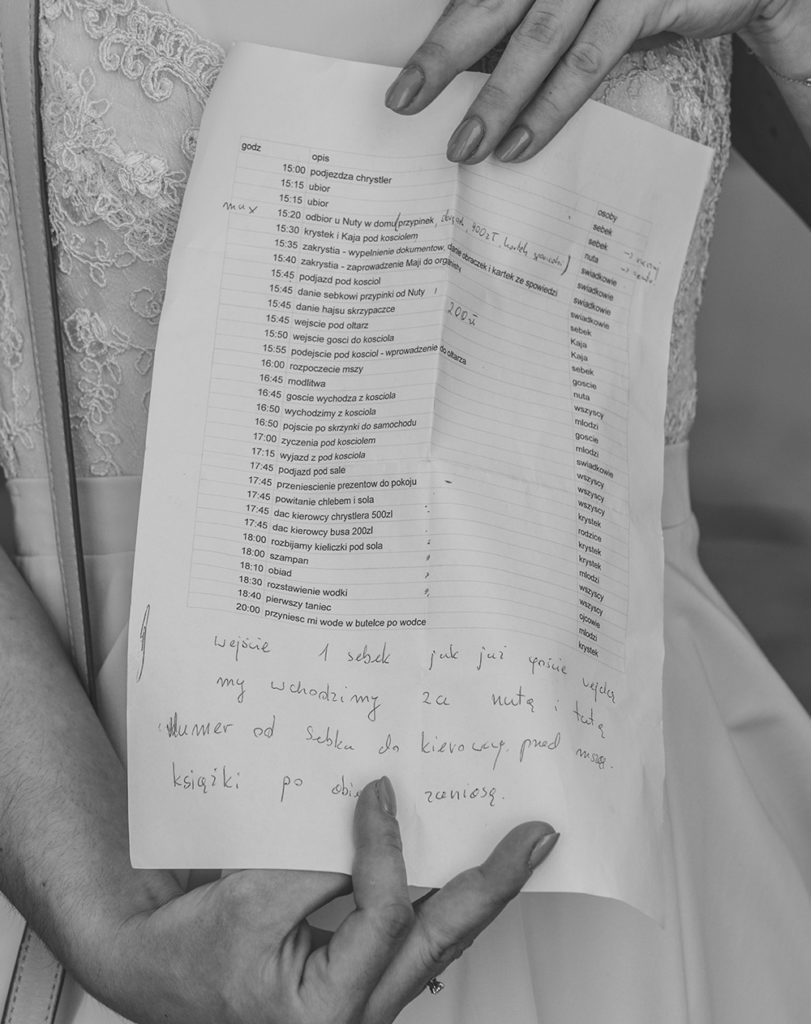 godz opis osoby
15:00 podjezdza chrystler sebek
15:15 ubior sebek
15:15 ubior nuta
max 15:20 odbior u Nuty w domu (przypinek, obrączek, 900zł, kartek, spowiedzi) swiadkowie
15:30 krystek i Kaja pod kosciolem swiadkowie
15:35 zakrystia - wypelnienie dokumentow, danie obraczek i kartek ze spowiedzi swiadkowie
15:40 zakrystia - zaprowadzenie Maji do organisty swiadkowie
15:45 podjazd pod kosciol sebek
15:45 danie sebkowi przypinki od Nuty Kaja
15:45 danie hajsu skrzypaczce 200zł Kaja
15:45 wejscie pod oltarz sebek
15:50 wejscie gosci do kosciola goscie
15:55 podejscie pod kosciol - wprowadzenie do oltarza nuta
16:00 rozpoczecie mszy wszyscy
16:45 modlitwa mlodzi
16:45 goscie wychodza z kosciola goscie
16:50 wychodzimy z kosciola mlodzi
16:50 pojscie po skrzynki do samochodu swiadkowie
17:00 zyczenia pod kosciolem wszyscy
17:15 wyjazd z pod kosciola wszyscy
17:45 podjazd pod sale wszyscy
17:45 przeniescienie prezentow do pokoju krystek
17:45 powitanie chlebem i sola rodzice
17:45 dac kierowcy chrystlera 500zl krystek
17:45 dac kierowcy busa 200zl krystek
18:00 rozbijamy kieliczki pod sola mlodzi
18:00 szampan wszyscy
18:10 obiad wszyscy
18:30 rozstawienie wodki ojcowie
18:40 pierwszy taniec mlodzi
20:00 przyniesc mi wode w butelce po wodce krystek
wejście 1 sebek jak już goście wejdą
my wchodzimy za nutą i tatą
Numer od Sebka do kierowcy. przed mszą.
książki po obie zaniosą.